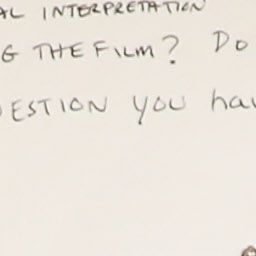 AL INTERPRETATION
G THE FILM? Do
ESTION you hav